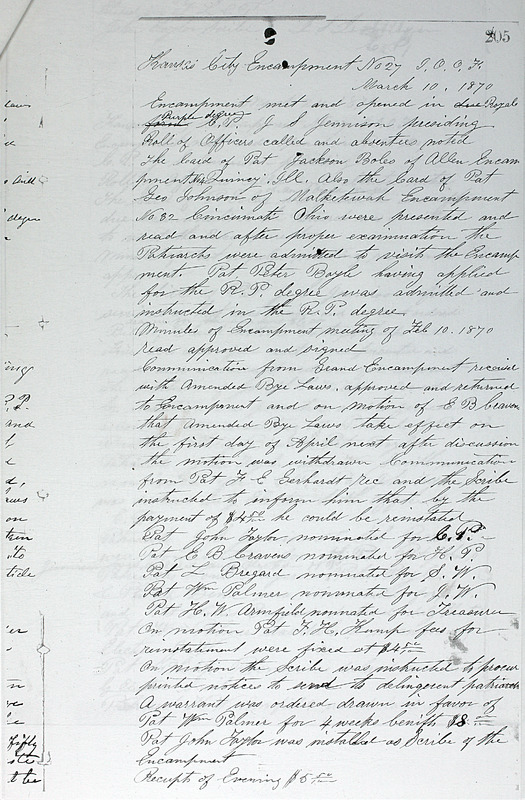 205
Kansas City Encampment No 27 I.O.O.F.
March 10, 1870
Encampment met and opened in due Royal
Purple degree
form C. P. J S Jennison presiding
Roll of Officers called and absentees noted
The Card of Pat Jackson Boles of Allen Encam
pment Quincy. Ill. Also the Card of Pat
Geo Johnson of Encampment
No 32 Cincinati Ohio were presented and
read and after proper examination the
Patriarchs were admitted to visit the Encamp
ment. Pat Peter Bogle having applied
for the R. P. degree was admitted and
instructed in the R. P. degree
Minutes of Encampment meeting of Feb 10. 1870
read approved and signed
Communication from Grand Encampment received
with Amended Bye Laws, approved and returned
to Encampment and on motion of E B Cravens
that Amended Bye Laws take effect on
the first day of April next after discussion
the motion was withdrawn Communication
from Pat F. E. Gerhardt rec and the Scribe
instructed to inform him that by the
payment of $4 he could be reinstated
Pat John Taylor nominated for C. P.
Pat E B Cravens nominated for H. P
Pat L Bregard nominated for S. W.
Pat Wm Palmer nominated for J. W.
Pat H. W. Armfield nominated for Treasurer
On motion Pat F. H. Kump fees for
reinstatement were fixed at $4
On motion the Scribe was instructed to procure
printed notices to send to delinqent patriarchs
A warrant was ordered drawn in favor of
Pat Wm Palmer for 4 weeks benifit $8
Pat John Taylor was installed as Scribe of the
Encampment
Receipts of Evening $5